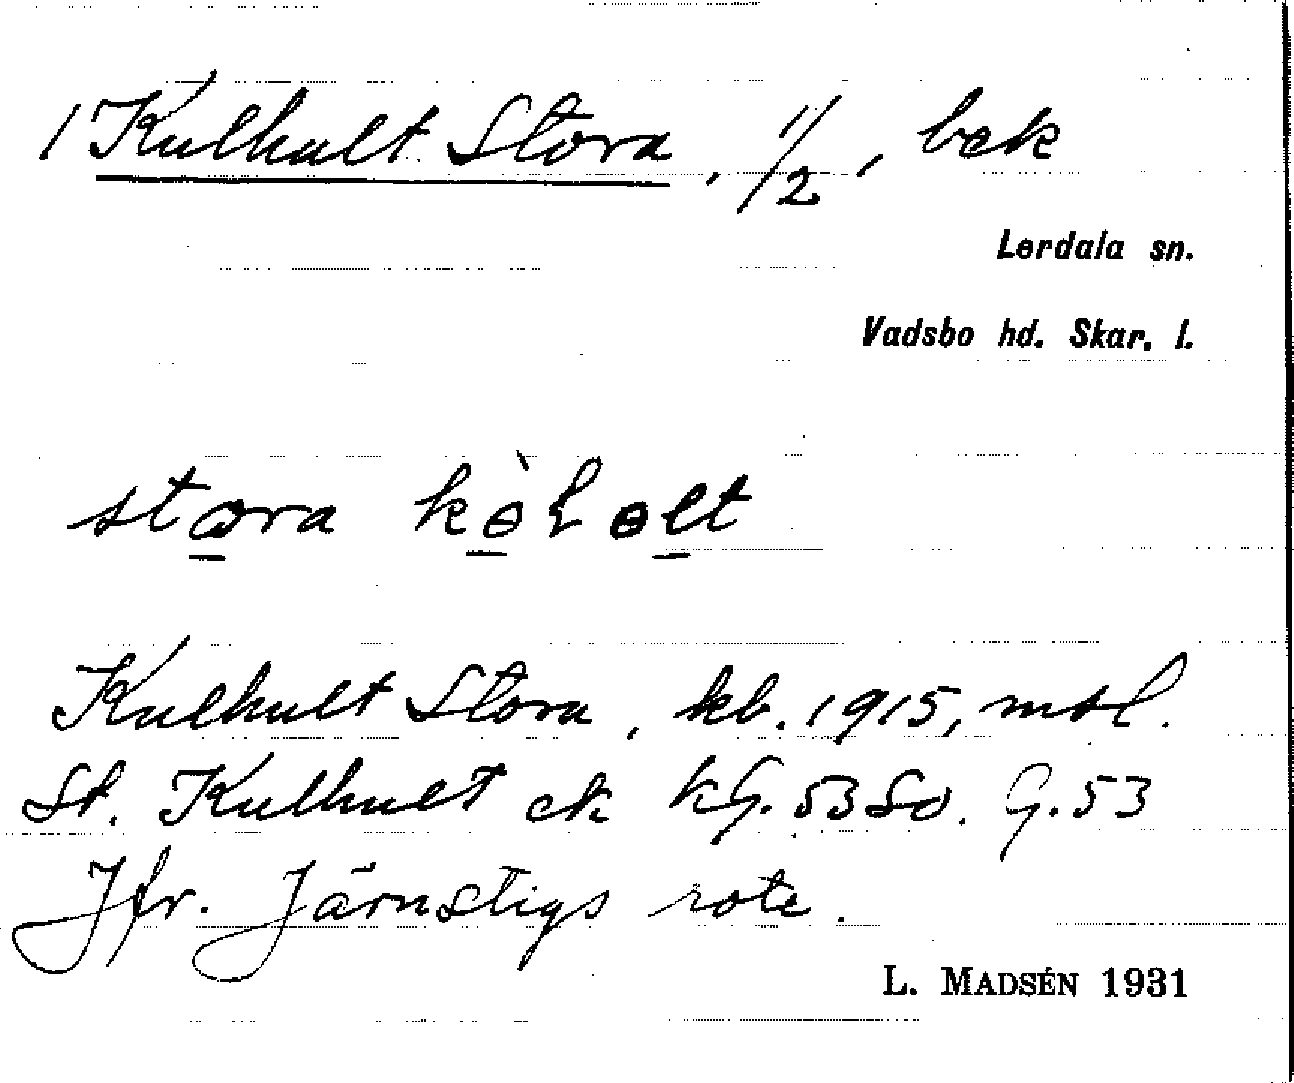 1 Kulhult Stora, 1/2, bek
Lerdala sn.
Vadsbo hd. Skar. l.
stora kөl̀өlt
Kulhult Stora, kb. 1915, mtl.
St. Kulhult ek kG. 53 So. G. 53
Jfr. Järnstigs rote.
L. MADSÉN 1931